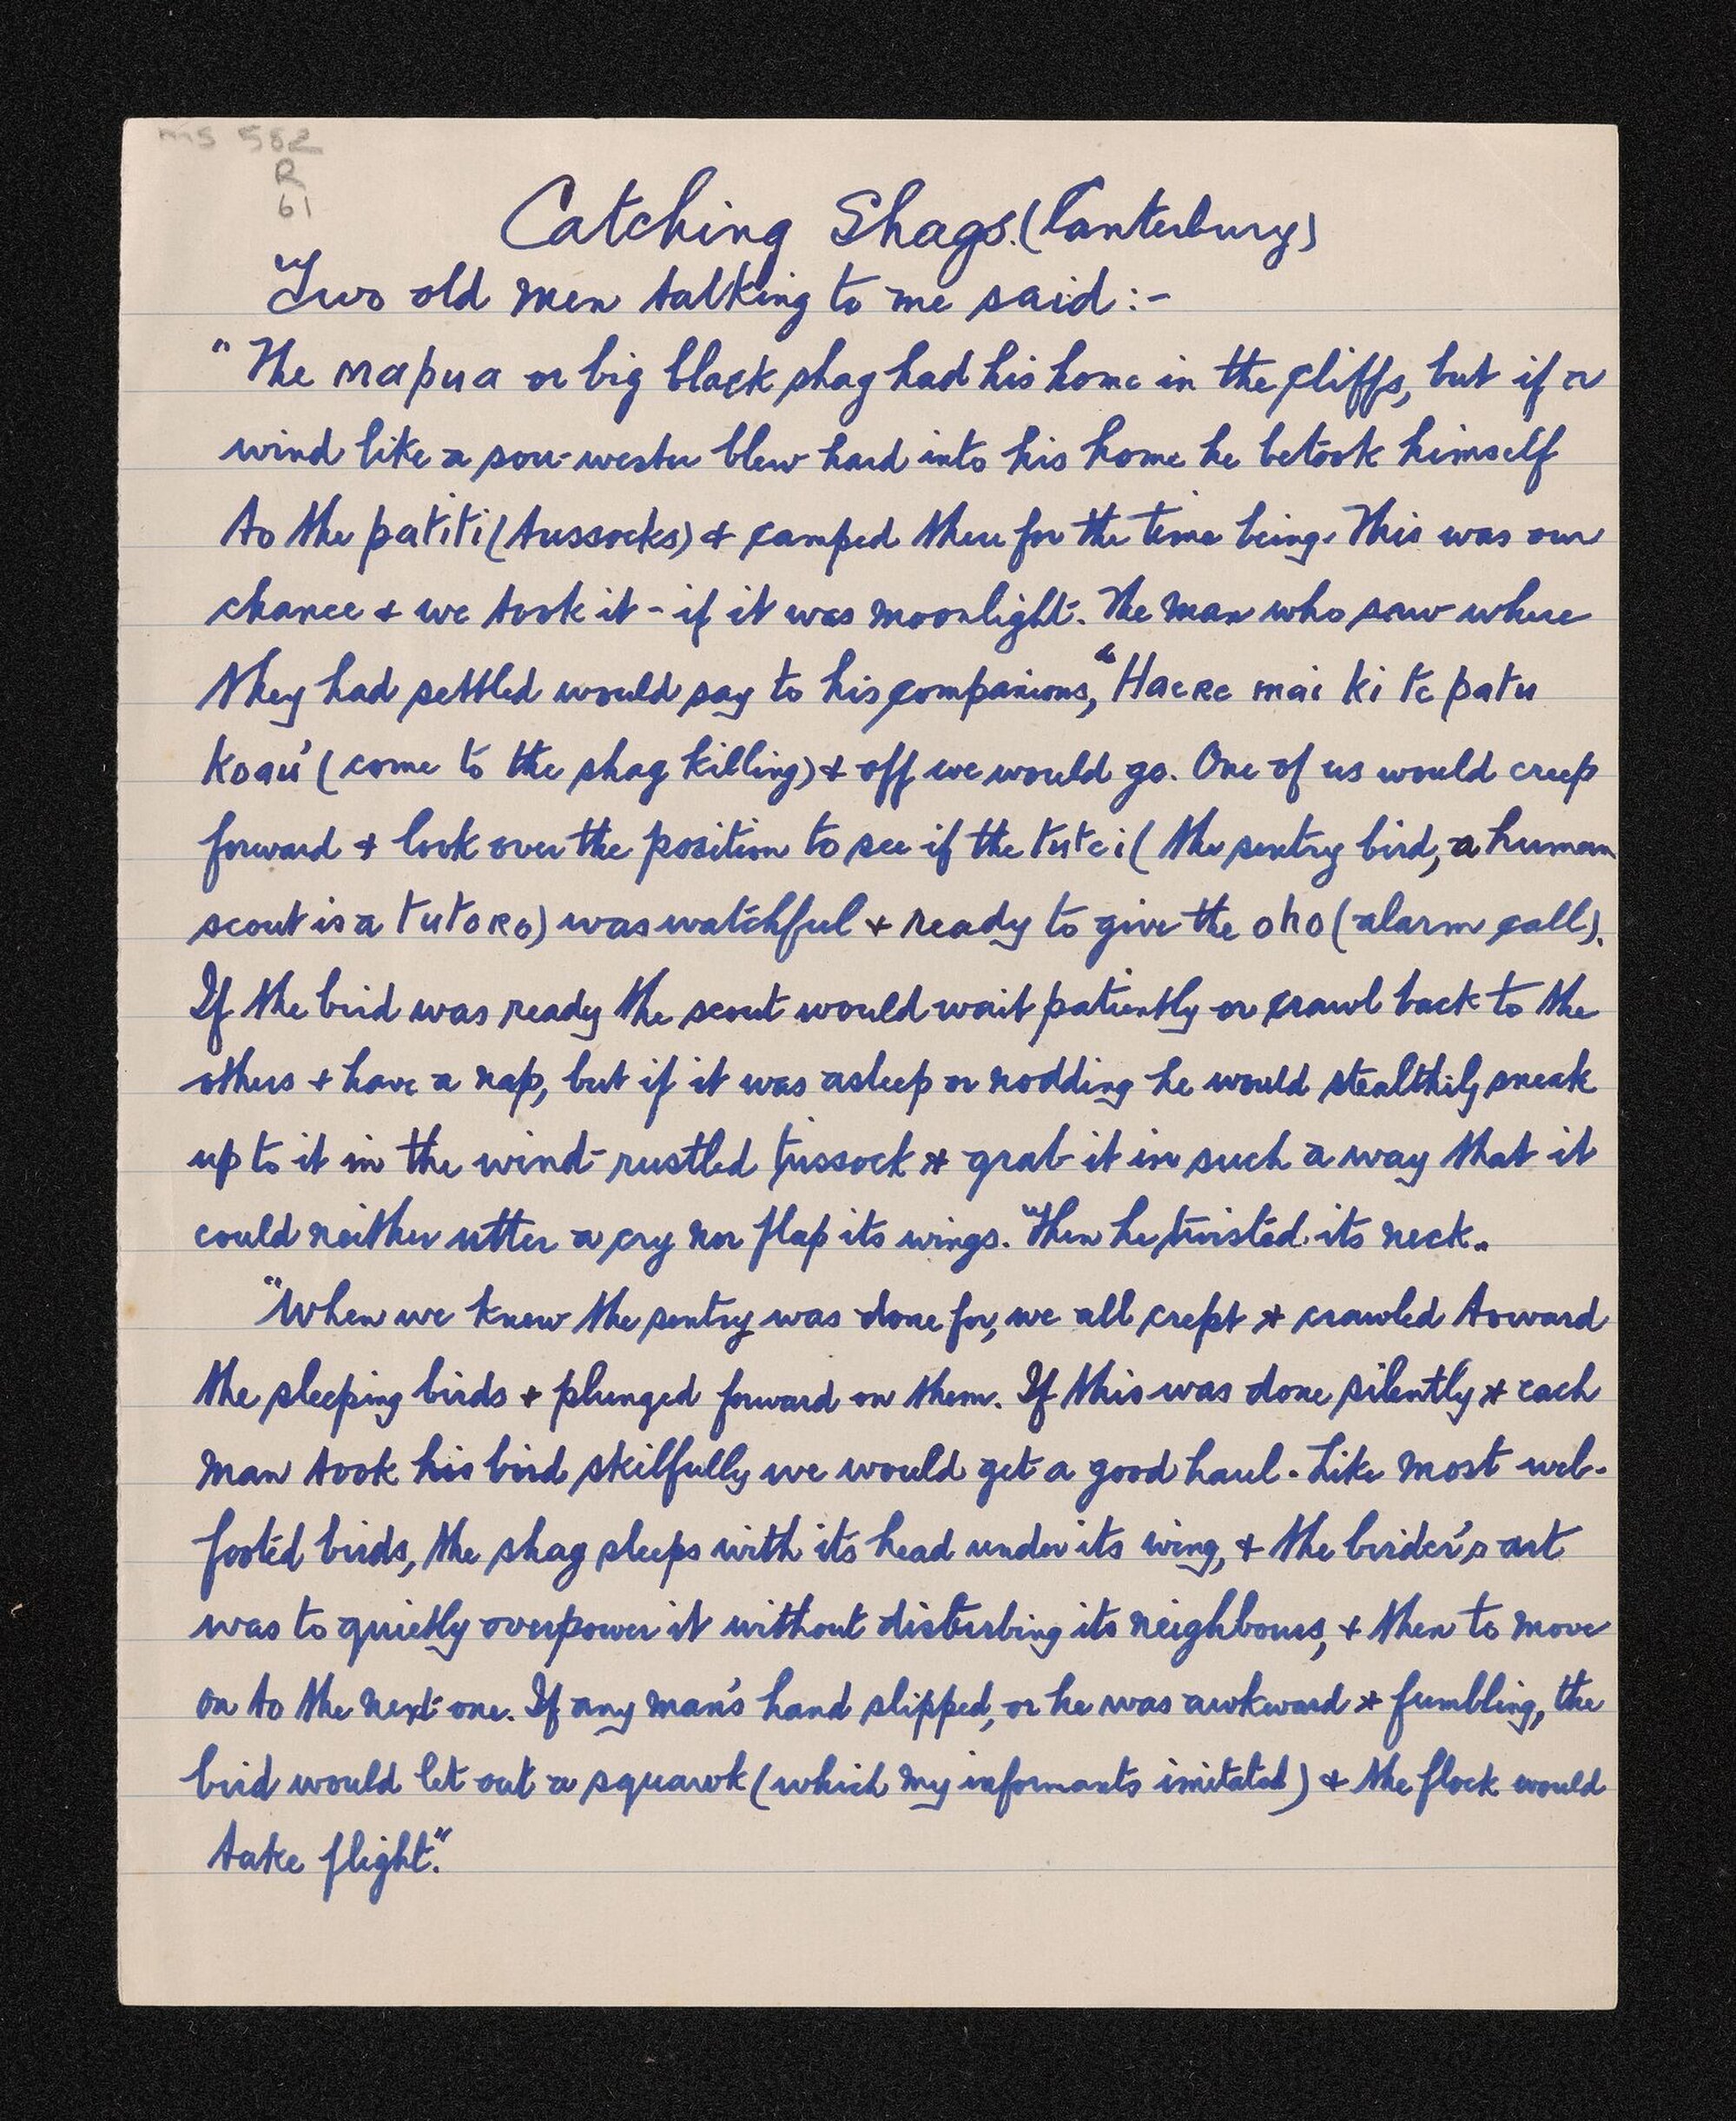 ms 582
R
61
Catching Shags. (Canterbury)
"Two old men talking to me said :-
"The mapua or big black shag had his home in the cliffs, but if a
wind like a sou-wester blew hard into his home he betook himself
to the patiti (tussocks) & camped there for the time being. This was our
chance & we took it - if it was moonlight. The man who saw where
they had settled would say to his companions, "Haere mai ki te patu
koau" (come to the shag killing) & off we would go. One of us would creep
forward & look over the position to see if the tutei (the sentry bird, a human
scout is a tutoro) was watchful & ready to give the oho (alarm call).
If the bird was ready the scout would wait patiently or crawl back to the
others & have a nap, but if it was asleep or nodding he would stealthily sneak
up to it in the wind-rustled tussock & grab it in such a way that it
could neither utter a cry nor flap its wings. Then he twisted its neck."
"When we knew the sentry was done for, we all crept & crawled toward
the sleeping birds & plunged forward on them. If this was done silently & each
man took his bird skilfully we would get a good haul. Like most web-
footed birds, the shag sleeps with its head under its wing, & the birder's art
was to quietly overpower it without disturbing its neighbours, & then to move
on to the next one. If any man's hand slipped, or he was awkward & fumbling, the
bird would let out a squawk (which my informants imitated) & the flock would
take flight."